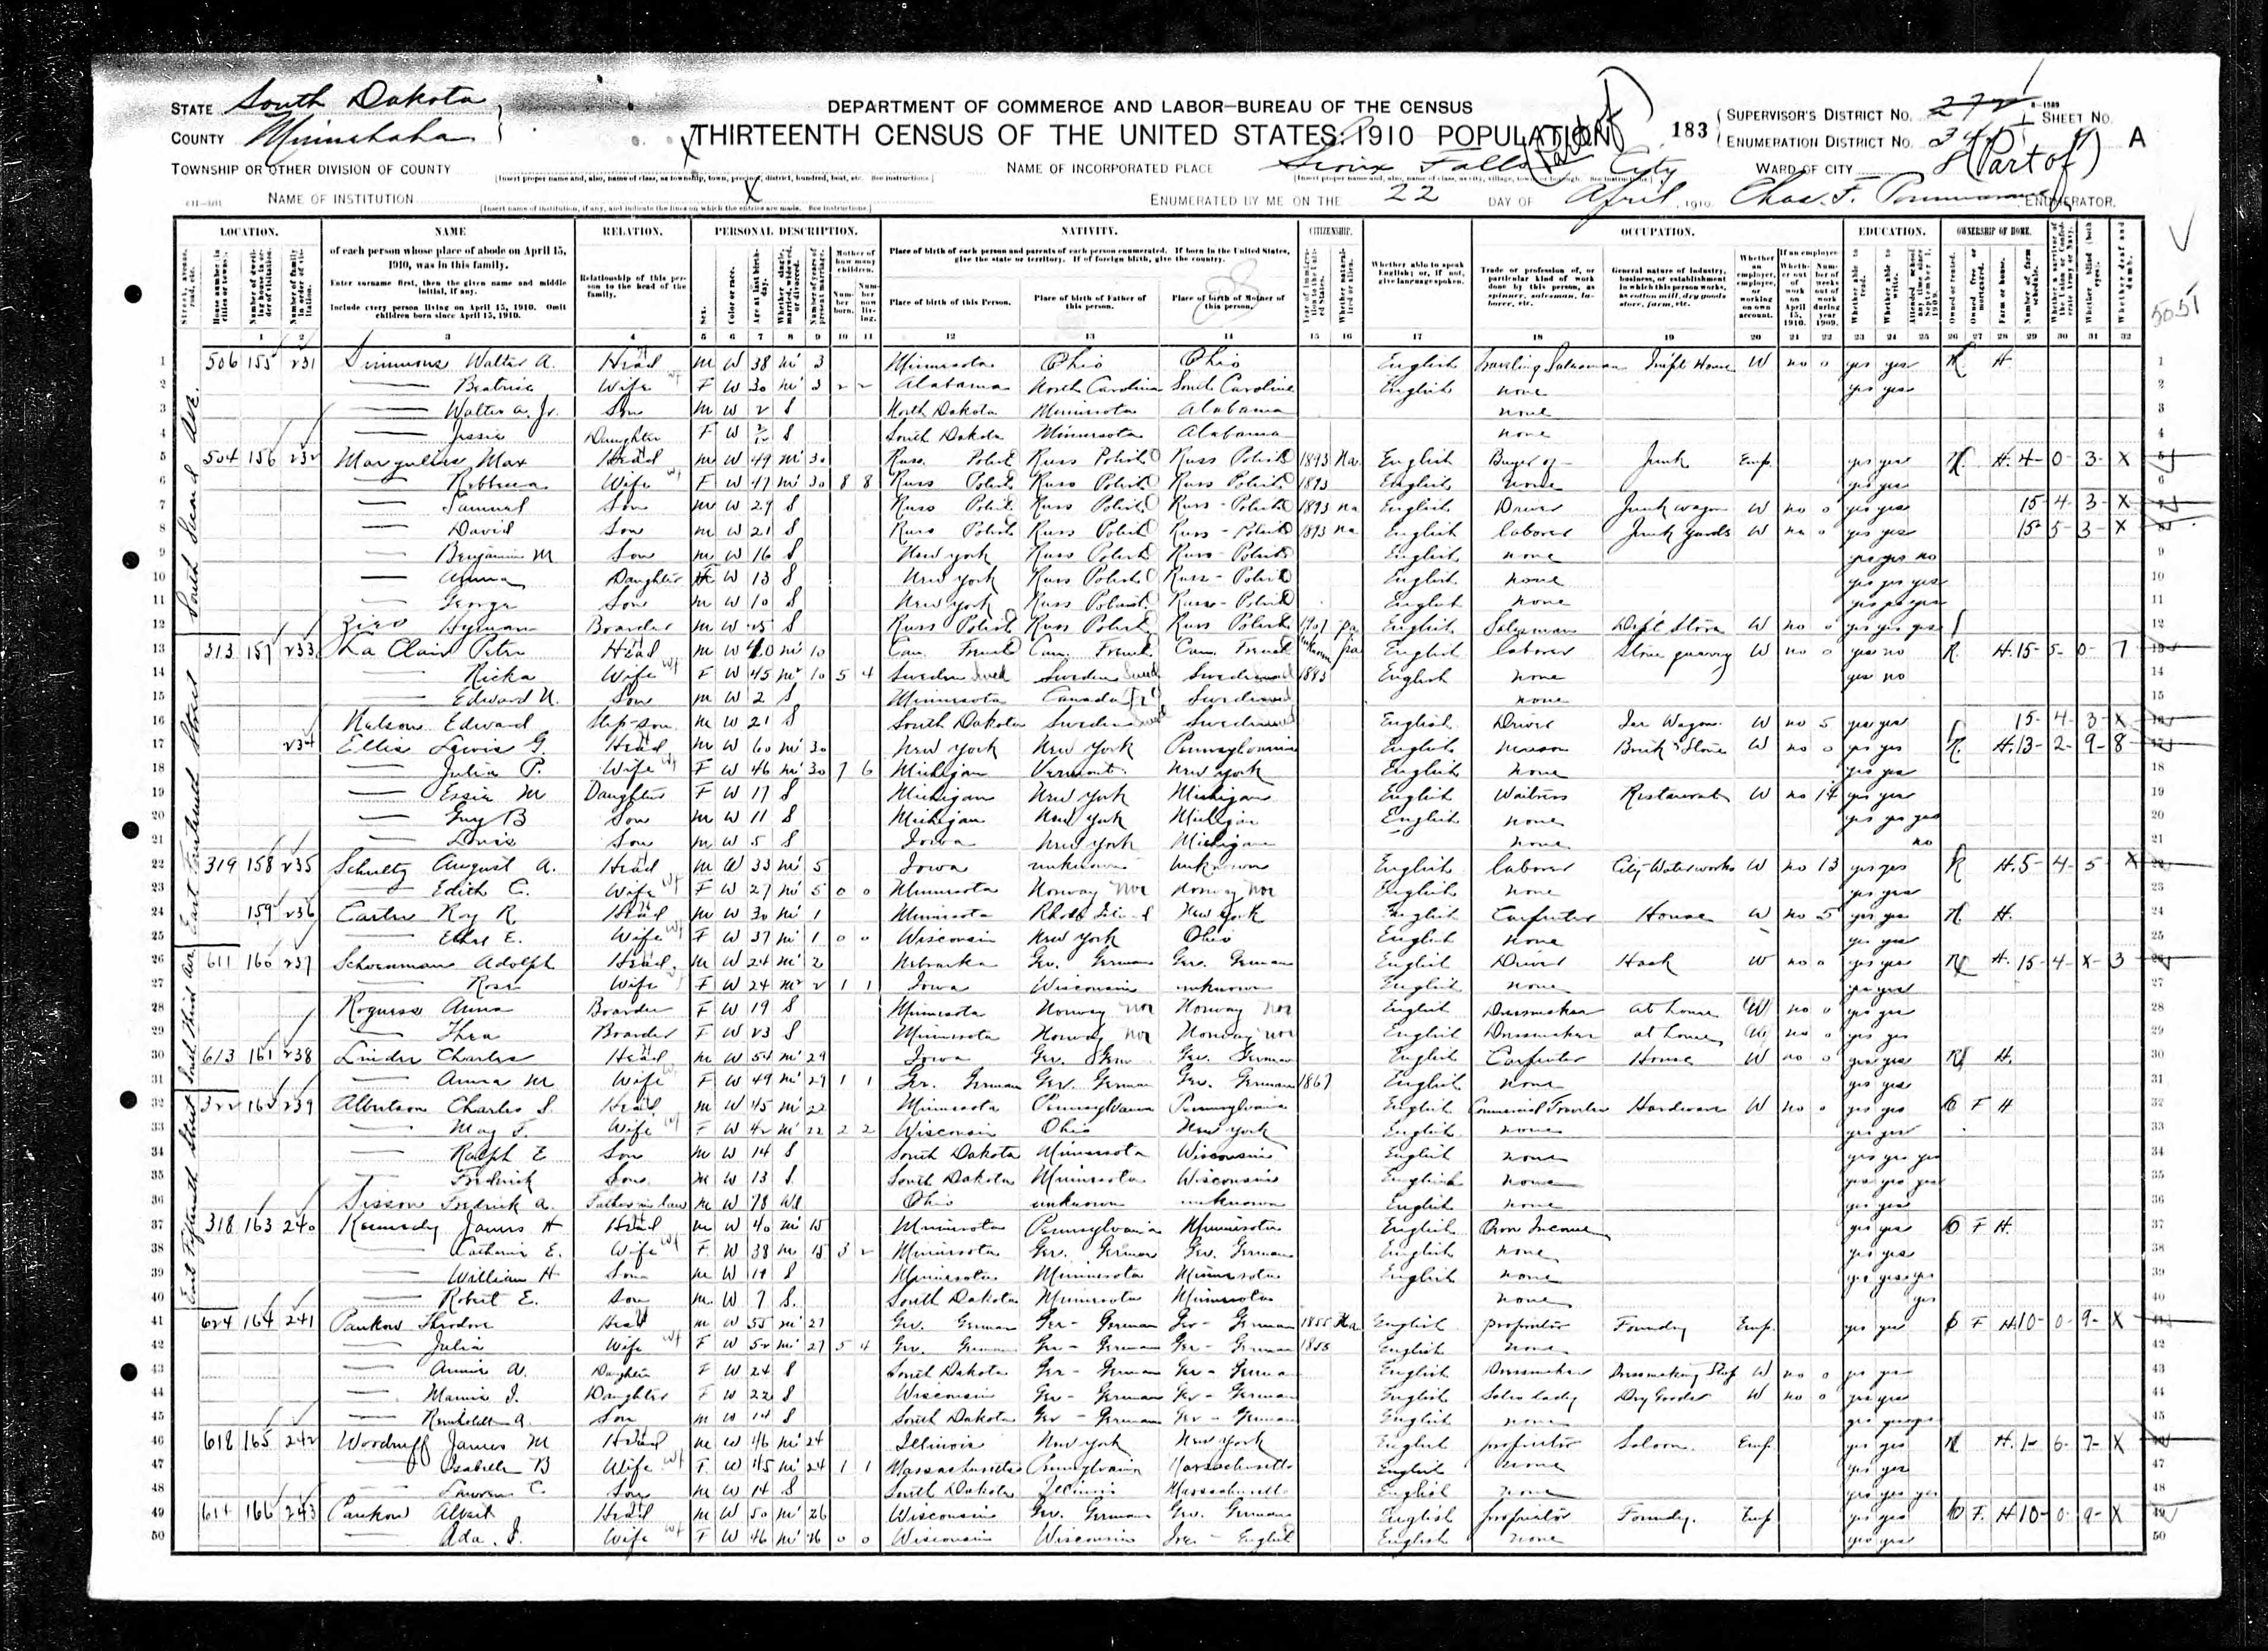 DEPARTMENT OF COMMERCE AND LABOR—BUREAU OF THE CENSUS
THIRTEENTH CENSUS OF THE UNITED STATES: 1910 POPULATION
STATE South Dakota
COUNTY Minnehaha
TOWNSHIP OR OTHER DIVISION OF COUNTY
NAME OF INSTITUTION
NAME OF INCORPORATED PLACE Sioux Falls City
ENUMERATED BY ME ON THE 22 DAY OF April, 1910. Chas. F. ENUMERATOR.
183
SUPERVISOR'S DISTRICT No.
ENUMERATION DISTRICT No.
SHEET No. A
WARD OF CITY (Part of)
LOCATION. NAME RELATION. PERSONAL DESCRIPTION. NATIVITY. CITIZENSHIP. OCCUPATION. EDUCATION. OWNERSHIP OF HOME.
of each person whose place of abode on April 15, 1910, was in this family.
Enter surname first, then the given name and middle initial, if any.
Include every person living on April 15, 1910. Omit children born since April 15, 1910.
Relationship of this person to the head of the family.
Place of birth of each person and parents of each person enumerated. If born in the United States, give the state or territory. If of foreign birth, give the country.
Place of birth of this Person. Place of birth of Father of this person. Place of birth of Mother of this person.
Whether able to speak English; or, if not, give language spoken.
Trade or profession of, or particular kind of work done by this person, as spinner, salesman, laborer, etc.
General nature of industry, business, or establishment in which this person works, as cotton mill, dry goods store, farm, etc.
South Second Ave.
1 506 155 231 Simmons Walter A. Head M W 38 M 3 Minnesota Ohio Ohio English Traveling Salesman Impl House W no 0 yes yes R H
2 Beatrice Wife F W 30 M 3 2 2 Alabama North Carolina South Carolina English none yes yes
3 Walter A. Jr. Son M W 2 S North Dakota Minnesota Alabama none
4 Jessie Daughter F W S South Dakota Minnesota Alabama none
5 504 156 232 Margulies Max Head M W 49 M 30 Russ Polish Russ Polish Russ Polish 1893 Na English Buyer of Junk Emp yes yes R H 4-0-3-X
6 Rebbecca Wife F W 47 M 30 8 8 Russ Polish Russ Polish Russ Polish 1893 English none yes yes
7 Samuel Son M W 29 S Russ Polish Russ Polish Russ-Polish 1893 na English Driver Junk wagon W no 0 yes yes 15-4-3-X
8 David Son M W 21 S Russ Polish Russ Polish Russ-Polish 1893 na English laborer Junk yards W no 0 yes yes 15-5-3-X
9 Benjamin M Son M W 16 S New York Russ Polish Russ-Polish English none yes yes no
10 Anna Daughter F W 13 S New York Russ Polish Russ-Polish English none yes yes yes
11 George Son M W 10 S New York Russ Polish Russ-Polish English none yes yes yes
12 Hyman Boarder M W 25 S Russ Polish Russ Polish Russ Polish 1907 pa English Salesman Dep't Store W no 0 yes yes yes
East Fourteenth Street
13 313 157 233 La Clair Peter Head M W 40 M 10 Can. French Can. French Can. French pa English laborer Stone quarry W no 0 yes no R H 15-5-0-7
14 Ricka Wife F W 45 M2 10 5 4 Sweden Swed Sweden Swed Sweden Swed 1883 English none yes no
15 Edward N. Son M W 2 S Minnesota Canada Fr Sweden none
16 Nelson Edward Step-son M W 21 S South Dakota Sweden Swed Sweden Swed English Driver Ice Wagon W no 5 yes yes 15-4-3-X
17 234 Ellis Lewis G. Head M W 60 M 30 New York New York Pennsylvania English mason Brick & Stone W no 0 yes yes R H 13-2-9-8
18 Julia P. Wife F W 46 M 30 7 6 Michigan Vermont New York English none yes yes
19 Essie M Daughter F W 17 S Michigan New York Michigan English Waitress Restaurant W no 14 yes yes
20 Guy B Son M W 11 S Michigan New York Michigan English none yes yes yes
21 Louis Son M W 5 S Iowa New York Michigan none no
22 319 158 235 Schultz August A. Head M W 33 M 5 Iowa unknown unknown English laborer City Waterworks W no 13 yes yes R H 5-4-5-X
23 Edith C. Wife F W 27 M 5 0 0 Minnesota Norway Nor Norway Nor English none yes yes
24 159 236 Carter Roy R. Head M W 30 M 1 Minnesota Rhode Island New York English Carpenter House W no 5 yes yes R H
25 Ethel E. Wife F W 37 M 1 0 0 Wisconsin New York Ohio English none yes yes
South Third Ave
26 611 160 237 Schoenman Adolph Head M W 24 M 2 Nebraska Ger. German Ger. German English Driver Hack W no 0 yes yes R H 15-4-X-3
27 Rose Wife F W 24 M 2 1 1 Iowa Wisconsin unknown English none yes yes
28 Anna Boarder F W 19 S Minnesota Norway Nor Norway Nor English Dressmaker at home W no 0 yes yes
29 Thea Boarder F W 23 S Minnesota Norway Nor Norway Nor English Dressmaker at home W no 0 yes yes
30 613 161 238 Linder Charles Head M W 54 M 29 Iowa Ger. Germ Ger. German English Carpenter House W no 0 yes yes R H
31 Anna M Wife F W 49 M 29 1 1 Ger. German Ger. German Ger. German 1867 English none yes yes
East Fifteenth Street
32 322 162 239 Albertson Charles S. Head M W 45 M 22 Minnesota Pennsylvania Pennsylvania English Commercial Traveler Hardware W no 0 yes yes O F H
33 May F. Wife F W 42 M 22 2 2 Wisconsin Ohio New York English none yes yes
34 Ralph E Son M W 14 S South Dakota Minnesota Wisconsin English none yes yes yes
35 Fredrick Son M W 13 S South Dakota Minnesota Wisconsin English none yes yes yes
36 Sisson Fredrick A. Father in law M W 78 Wd Ohio unknown unknown English none yes yes
37 318 163 240 Kennedy James H Head M W 40 M 15 Minnesota Pennsylvania Minnesota English Own Income yes yes O F H
38 Catherine E. Wife F W 38 M 15 3 2 Minnesota Ger. German Ger. German English none yes yes
39 William H Son M W S Minnesota Minnesota Minnesota English none yes yes yes
40 Robert E. Son M W 7 S South Dakota Minnesota Minnesota none yes
41 624 164 241 Pankow Theodore Head M W 55 M 27 Ger. German Ger-German Ger-German 1855 Na English proprietor Foundry Emp yes yes O F H 10-0-9-X
42 Julia Wife F W 52 M 27 5 4 Ger. German Ger-German Ger-German 1855 English none
43 Annie A. Daughter F W 24 S South Dakota Ger-German Ger-German English Dressmaker Dressmaking Shop W no 0 yes yes
44 Mamie I. Daughter F W 22 S Wisconsin Ger-German Ger-German English Sales lady Dry Goods W no 0 yes yes
45 A. Son M W 14 S South Dakota Ger-German Ger-German English none yes yes yes
46 618 165 242 Woodruff James M Head M W 46 M 24 Illinois New York New York English proprietor Saloon Emp yes yes R H 1-6-7-X
47 Isabelle B Wife F W 45 M 24 1 1 Massachusetts Pennsylvania Massachusetts English none yes yes
48 C Son M W 14 S South Dakota Illinois Massachusetts English none yes yes yes
49 614 166 243 Pankow Albert Head M W 50 M 26 Wisconsin Ger. German Ger. German English proprietor Foundry Emp yes yes O F H 10-0-9-X
50 Ada. I. Wife F W 46 M 26 0 0 Wisconsin Wisconsin Ire-English English none yes yes